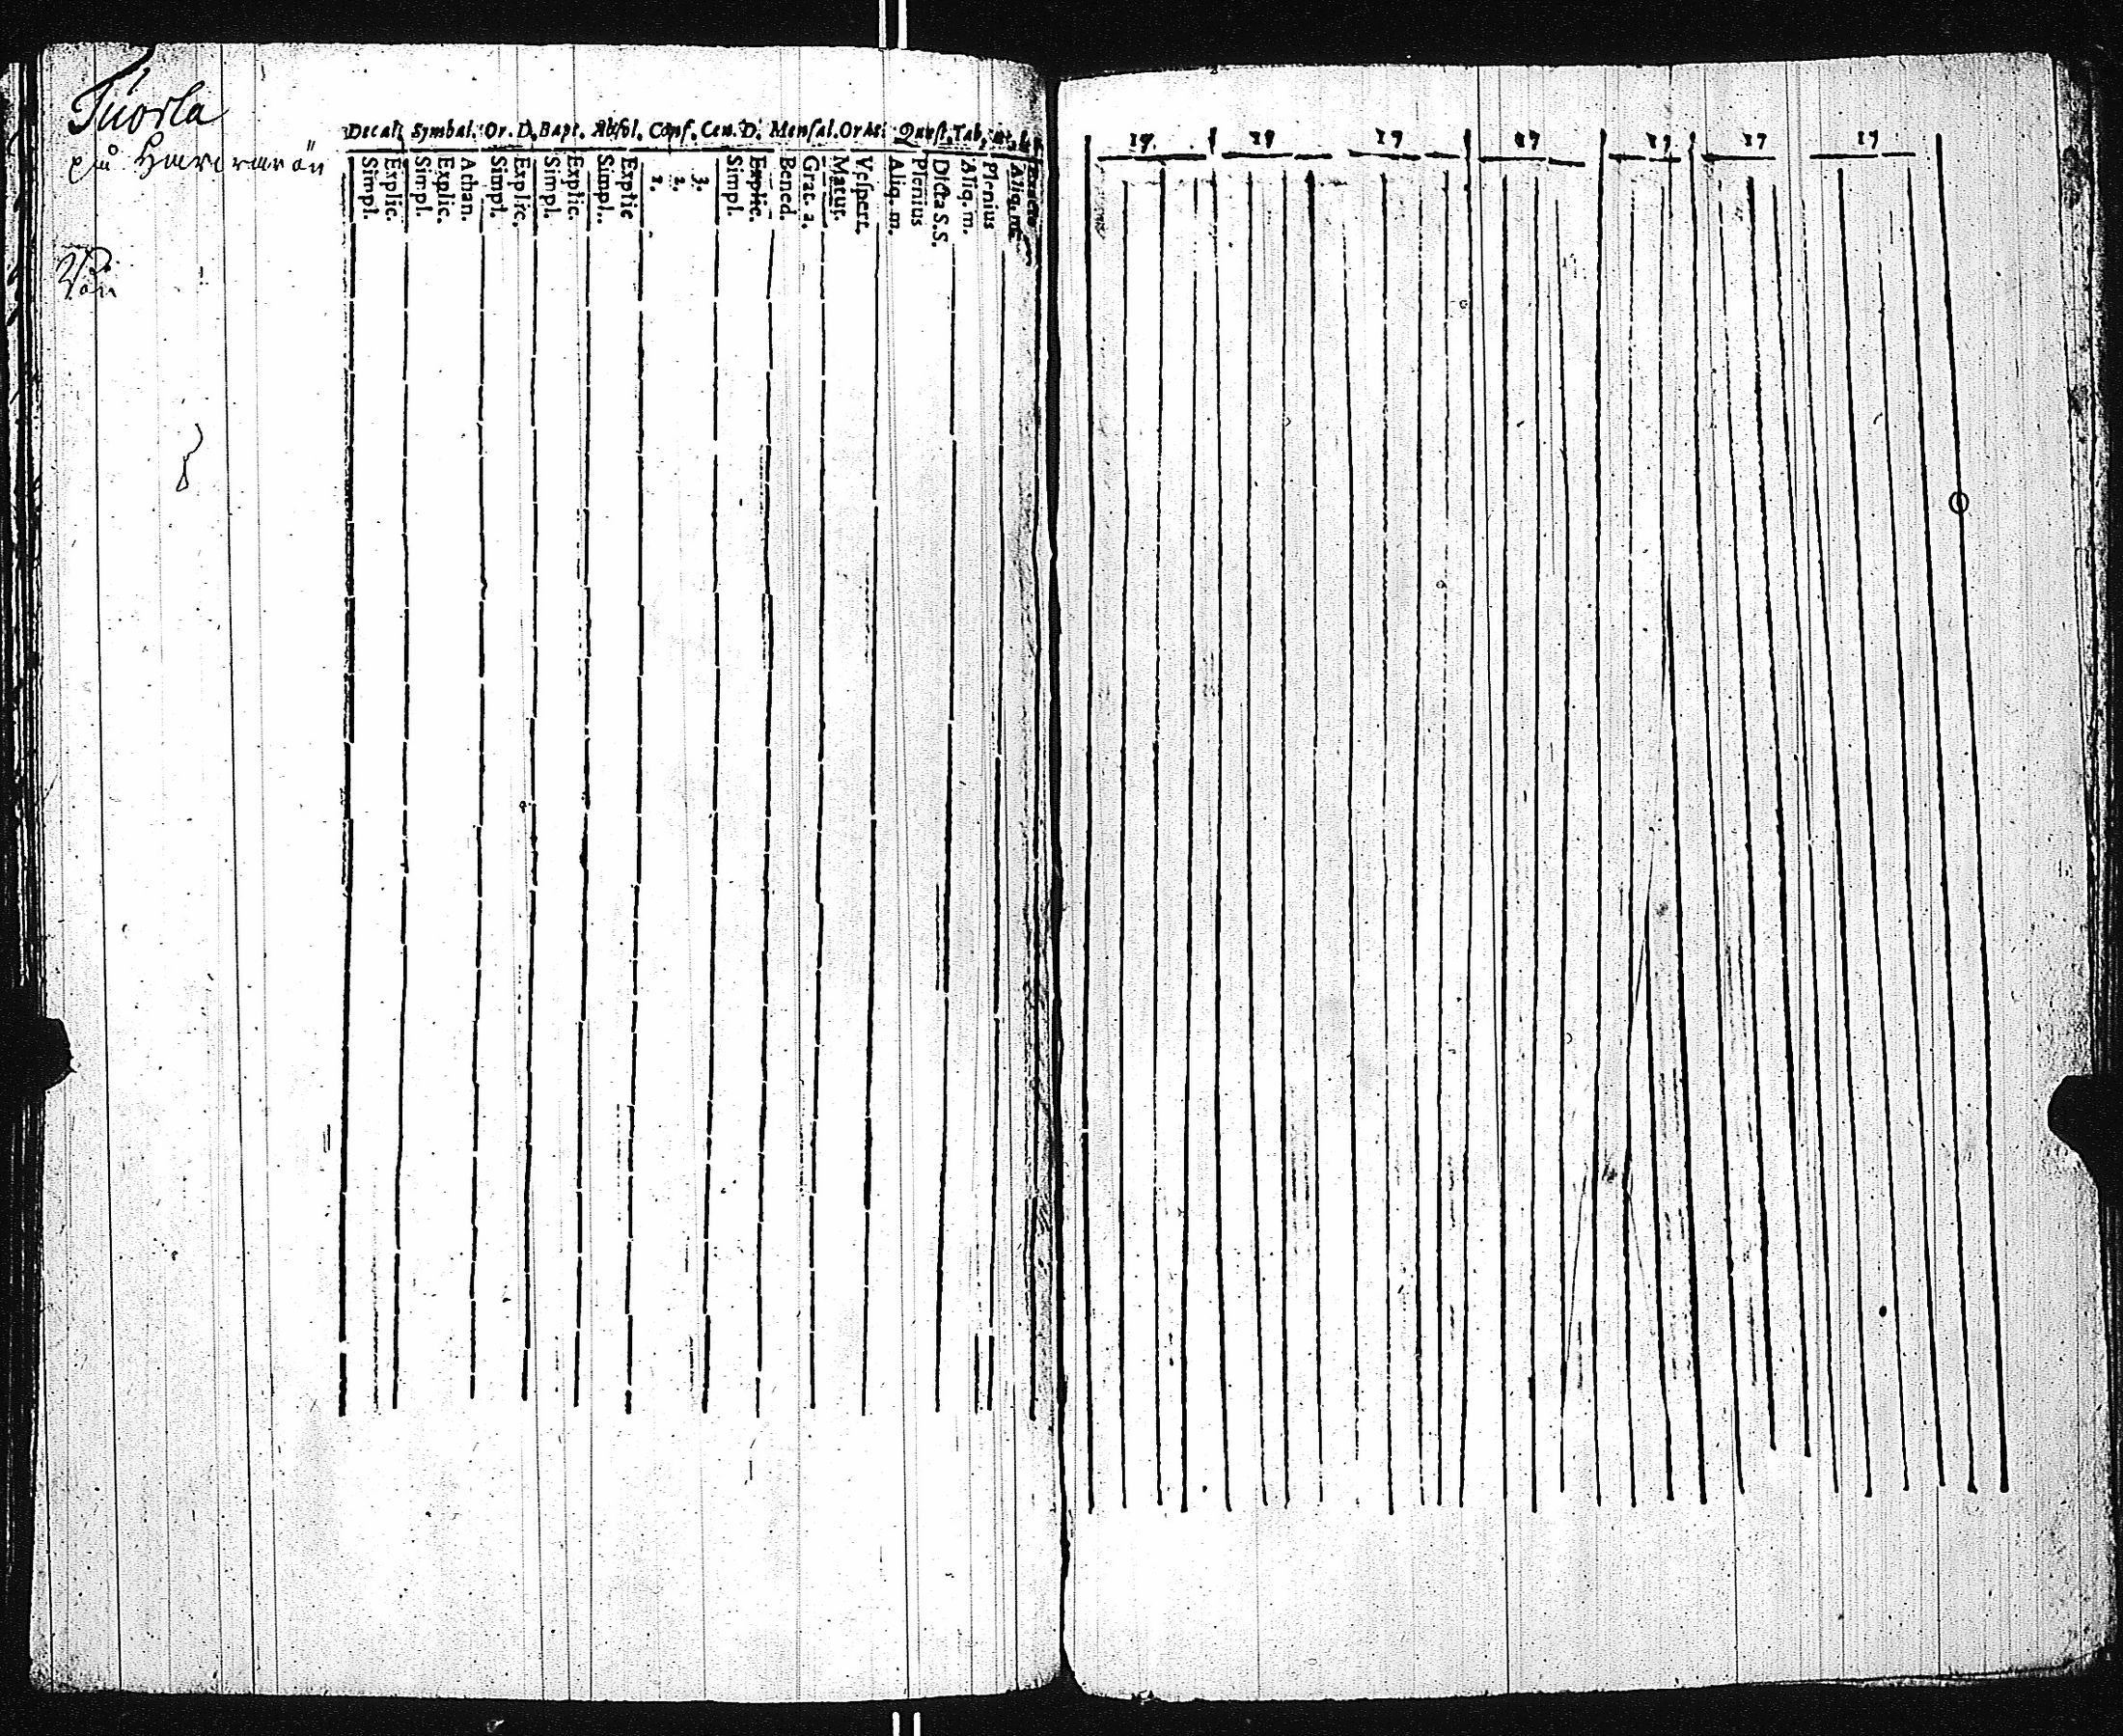 Tuorla
på
Decal. Symbol. Or. D. Bapt. Absol. Conf. Cœn. D. Mensal. Orat. Quæst. Tab.
Simpl. Explic. Simpl. Explic. Athan. Simpl. Explic. Simpl. Explic. Simpl. Explic 1. 2. 3. Simpl. Explic. Bened. Grat. a. Matut. Vespert. Aliq. m. Plenius Dicta S.S. Aliq. m. Plenius Aliq. m.
17. 17 17 17 17 17 17